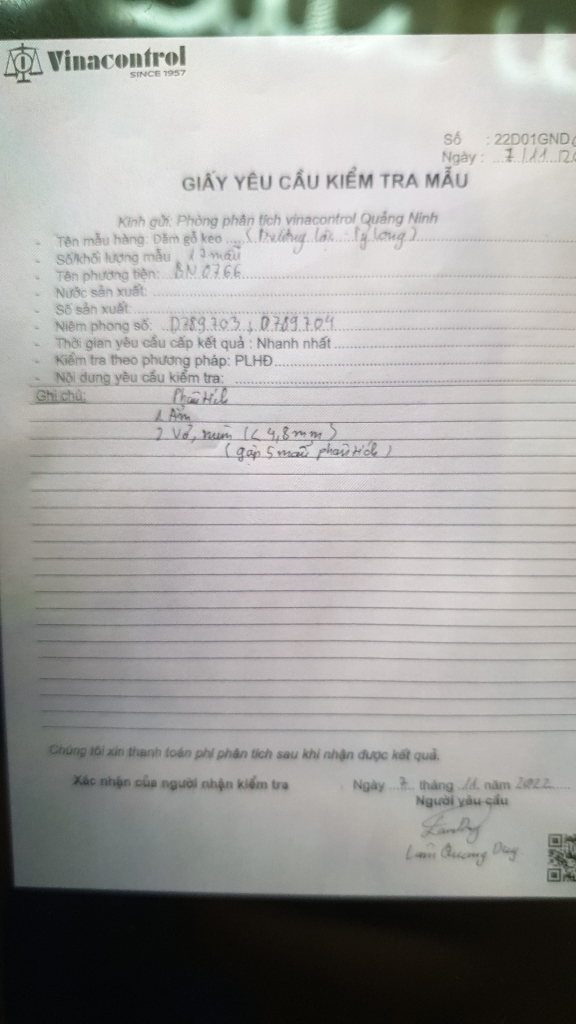 Vinacontrol
SINCE 1957
Số : 22D01GND
Ngày : 7/11
GIẤY YÊU CẦU KIỂM TRA MẪU
Kính gửi: Phòng phân tích vinacontrol Quảng Ninh
- Tên mẫu hàng: Dăm gỗ keo
- Số/khối lượng mẫu mẫu
- Tên phương tiện: BN 0766
- Nước sản xuất:
- Số sản xuất:
- Niêm phong số: D789.703; D789.704
- Thời gian yêu cầu cấp kết quả : Nhanh nhất
- Kiểm tra theo phương pháp: PLHĐ
- Nội dung yêu cầu kiểm tra:
Ghi chú: Phân tích
1. Ẩm
2. Vỏ, mùn (< 4,8mm)
(gộp 5 mẫu phân tích)
Chúng tôi xin thanh toán phí phân tích sau khi nhận được kết quả.
Xác nhận của người nhận kiểm tra
Ngày 7 tháng 11 năm 2022
Người yêu cầu
Lâm Quang Duy